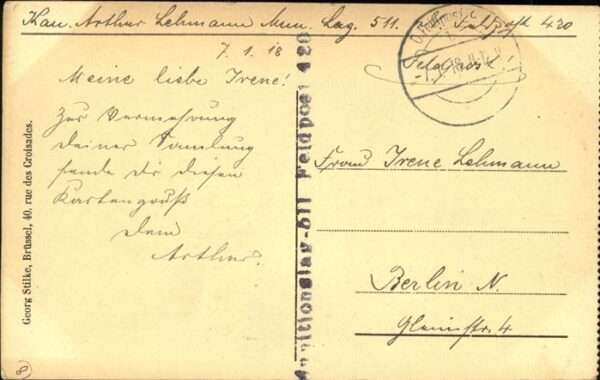 Kan. Arthur Lehmann Mun. Lag. 511. Feldpost 420
7.1.18
Meine liebe Irene!
Zur Vermehrung
deiner Samlung
sende dir diesen
Kartengruß
Dein
Arthur.
Feldpost!
Frau Irene Lehmann
Berlin N.
Gleimstr. 4
Munitionslag. 511 Feldpost 420
Georg Stilke, Brüssel, 40, rue des Croisades.
8